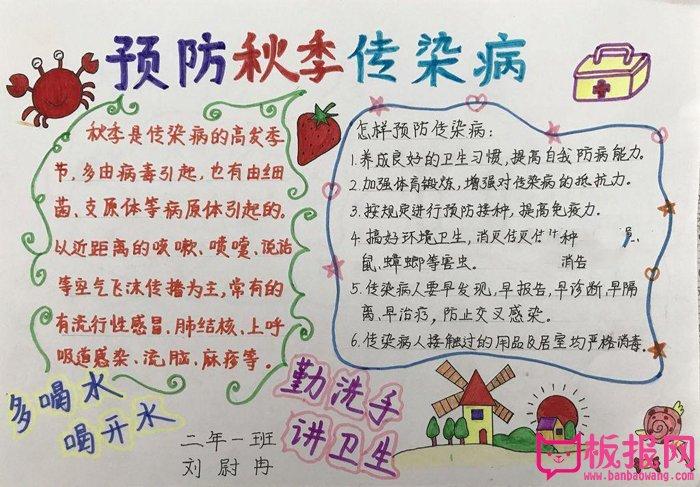 预防秋季传染病
秋季是传染病的高发季
节,多由病毒引起,也有由细
菌、支原体等病原体引起的。
以近距离的咳嗽、喷嚏、说话
等空气飞沫传播为主,常有的
有流行性感冒、肺结核、上呼
吸道感染、流脑、麻疹等。
怎样预防传染病:
1.养成良好的卫生习惯,提高自我防病能力。
2.加强体育锻炼,增强对传染病的抵抗力。
3.按规定进行预防接种,提高免疫力。
4.搞好环境卫生,消灭
鼠、蟑螂等害虫。
5.传染病人要早发现,早报告,早诊断,早隔
离,早治疗,防止交叉感染。
6.传染病人接触过的用品及居室均严格消毒。
多喝水
喝开水
勤洗手
讲卫生
二年一班
刘尉冉
板报网
www.banbaowang.com